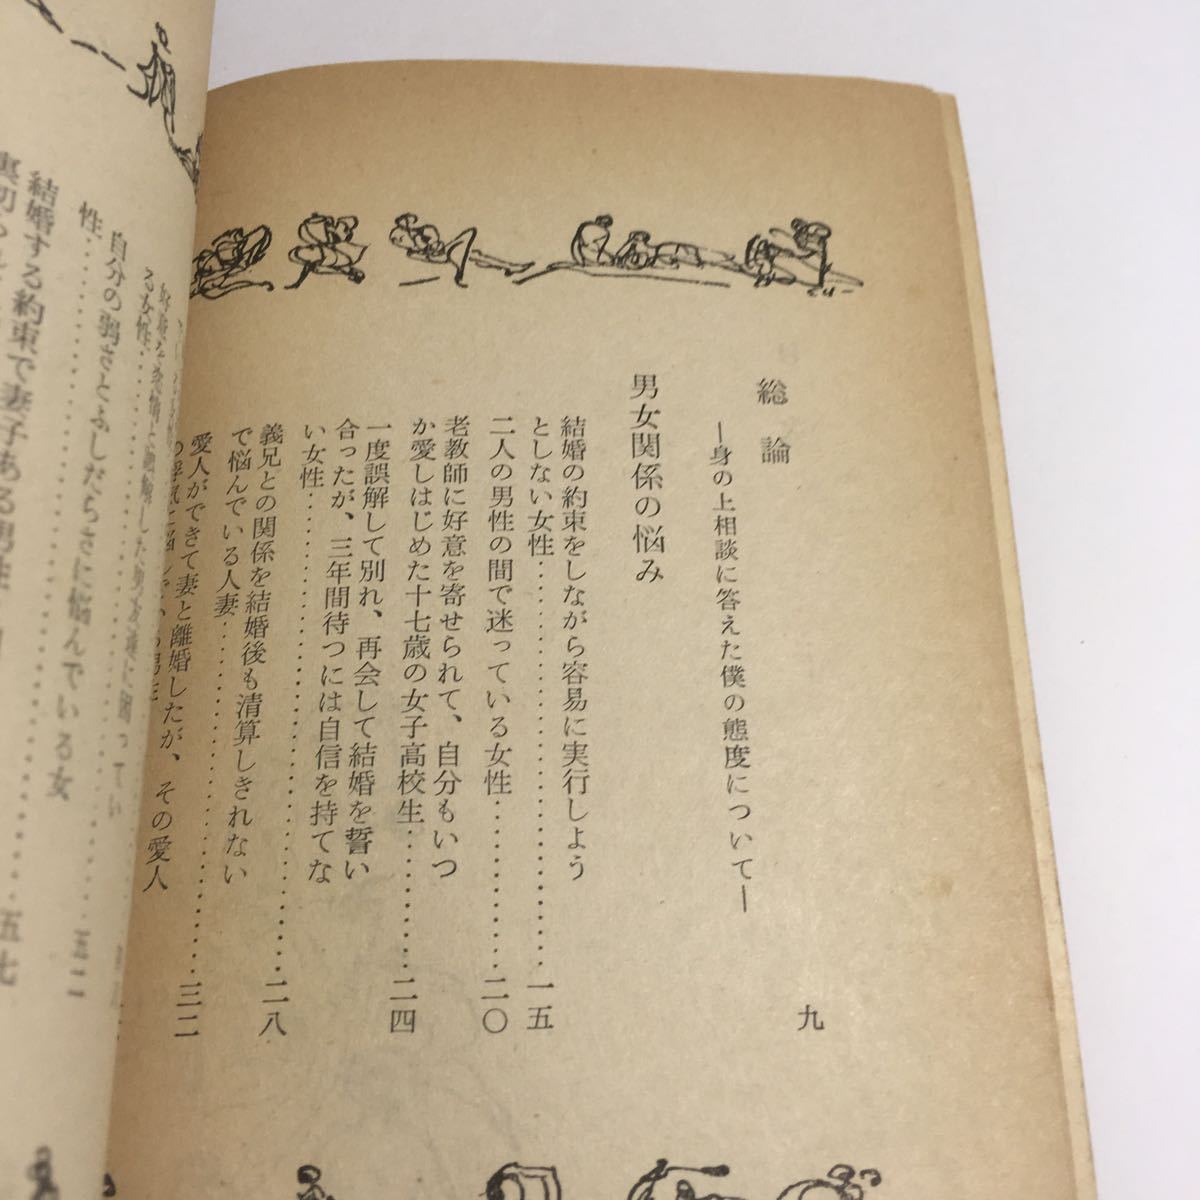 総論
―身の上相談に答えた僕の態度について―
九
男女関係の悩み
結婚の約束をしながら容易に実行しよう
としない女性……………一五
二人の男性の間で迷っている女性……二〇
老教師に好意を寄せられて、自分もいつ
か愛しはじめた十七歳の女子高校生……二四
一度誤解して別れ、再会して結婚を誓い
合ったが、三年間待つには自信を持てな
い女性……………二八
義兄との関係を結婚後も清算しきれない
で悩んでいる人妻……………三二
愛人ができて妻と離婚したが、その愛人
る女性
自分の弱さとふしだらさに悩んでいる女
性……………五二
結婚する約束で妻子ある男性
五七